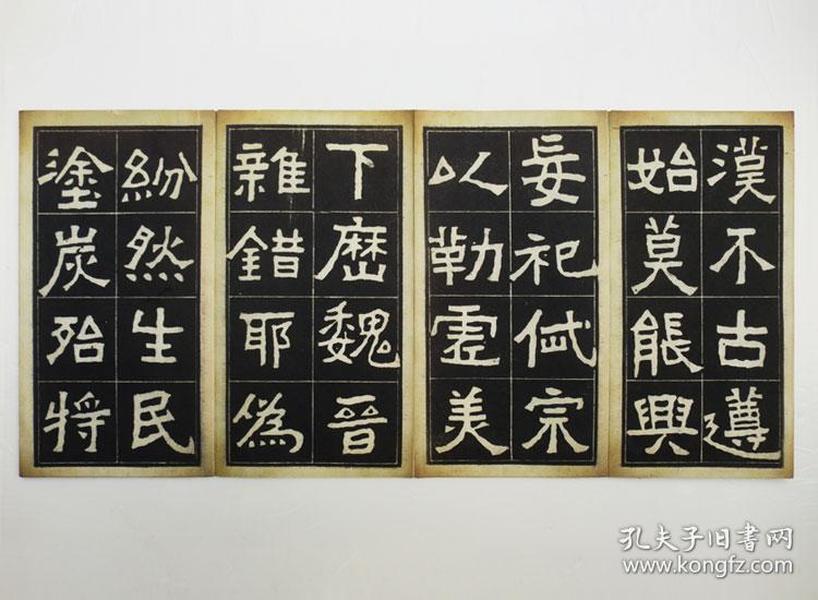 漢不古遵
始莫能興
妄祀岱宗
以勒虛美
下歷魏晉
雜錯耶偽
紛然生民
塗炭殆將
孔夫子旧书网
www.kongfz.com